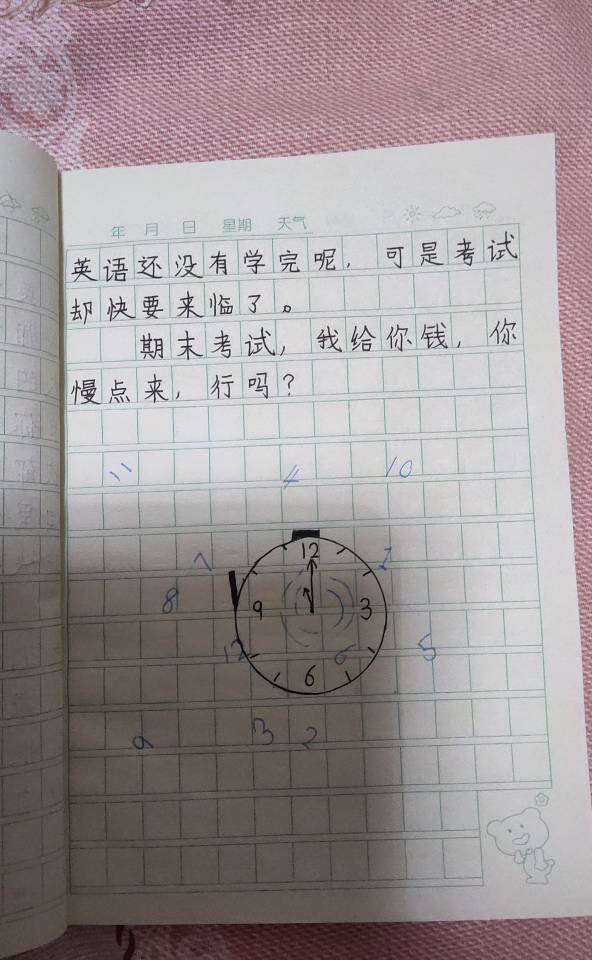 年 月 日 星期 天气
英语还没有学完呢，可是考试
却快要来临了。
期末考试，我给你钱，你
慢点来，行吗？
11 4 10
12
7 1
8 9 3
12 6 5
6
9 3 2